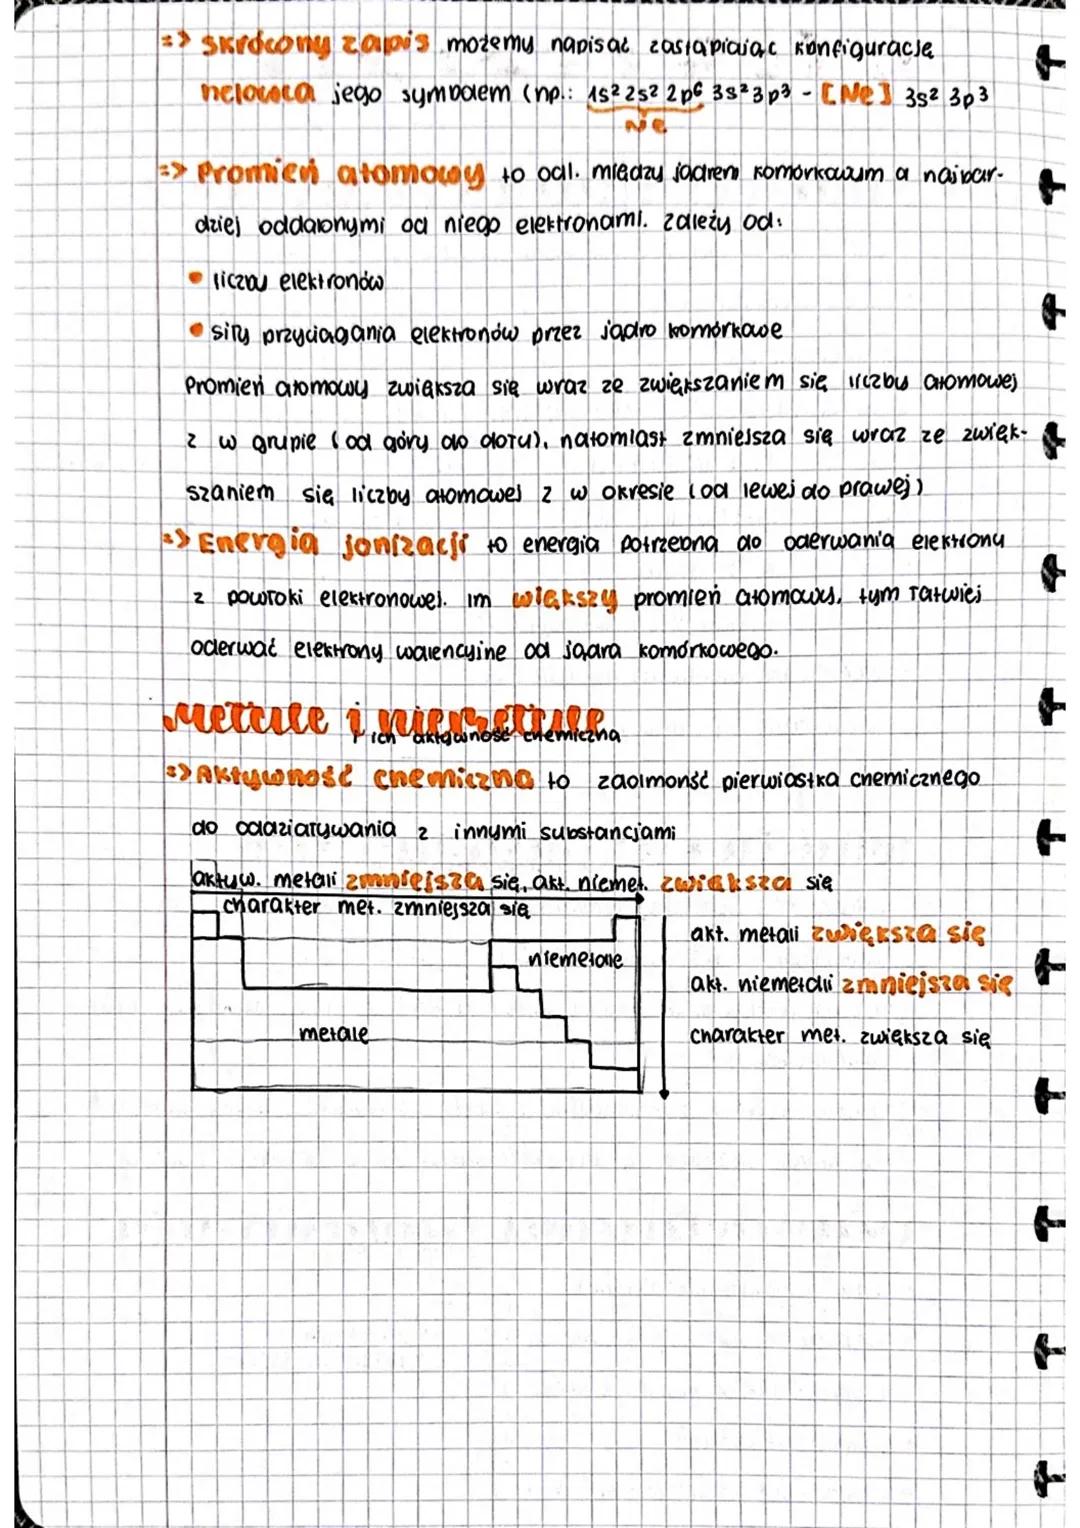 => skrócony zapis możemy napisać zastąpiając konfigurację
helowca jego symbolem (np.: 1s² 2s² 2p⁶ 3s² 3p³ - [Ne] 3s² 3p³
Ne
=> Promień atomowy to odl. między jądrem komórkowym a najbar-
dziej oddalonymi od niego elektronami. zależy od:
• liczby elektronów
• siły przyciągania elektronów przez jądro komórkowe
Promień atomowy zwiększa się wraz ze zwiększaniem się liczby atomowej
z w grupie (od góry do dołu), natomiast zmniejsza się wraz ze zwięk-
szaniem się liczby atomowej z w okresie (od lewej do prawej)
=> Energia jonizacji to energia potrzebna do oderwania elektronu
z powłoki elektronowej. im większy promień atomowy, tym łatwiej
oderwać elektrony walencyjne od jądra komórkowego.
Metale i niemetale
i ich aktywność chemiczna
=> Aktywność chemiczna to zdolmonść pierwiastka chemicznego
do oddziaływania z innymi substancjami
aktyw. metali zmniejsza się, akt. niemet. zwiększa się
charakter met. zmniejsza się
akt. metali zwiększa się
niemetale
akt. niemetali zmniejsza się
metale
charakter met. zwiększa się